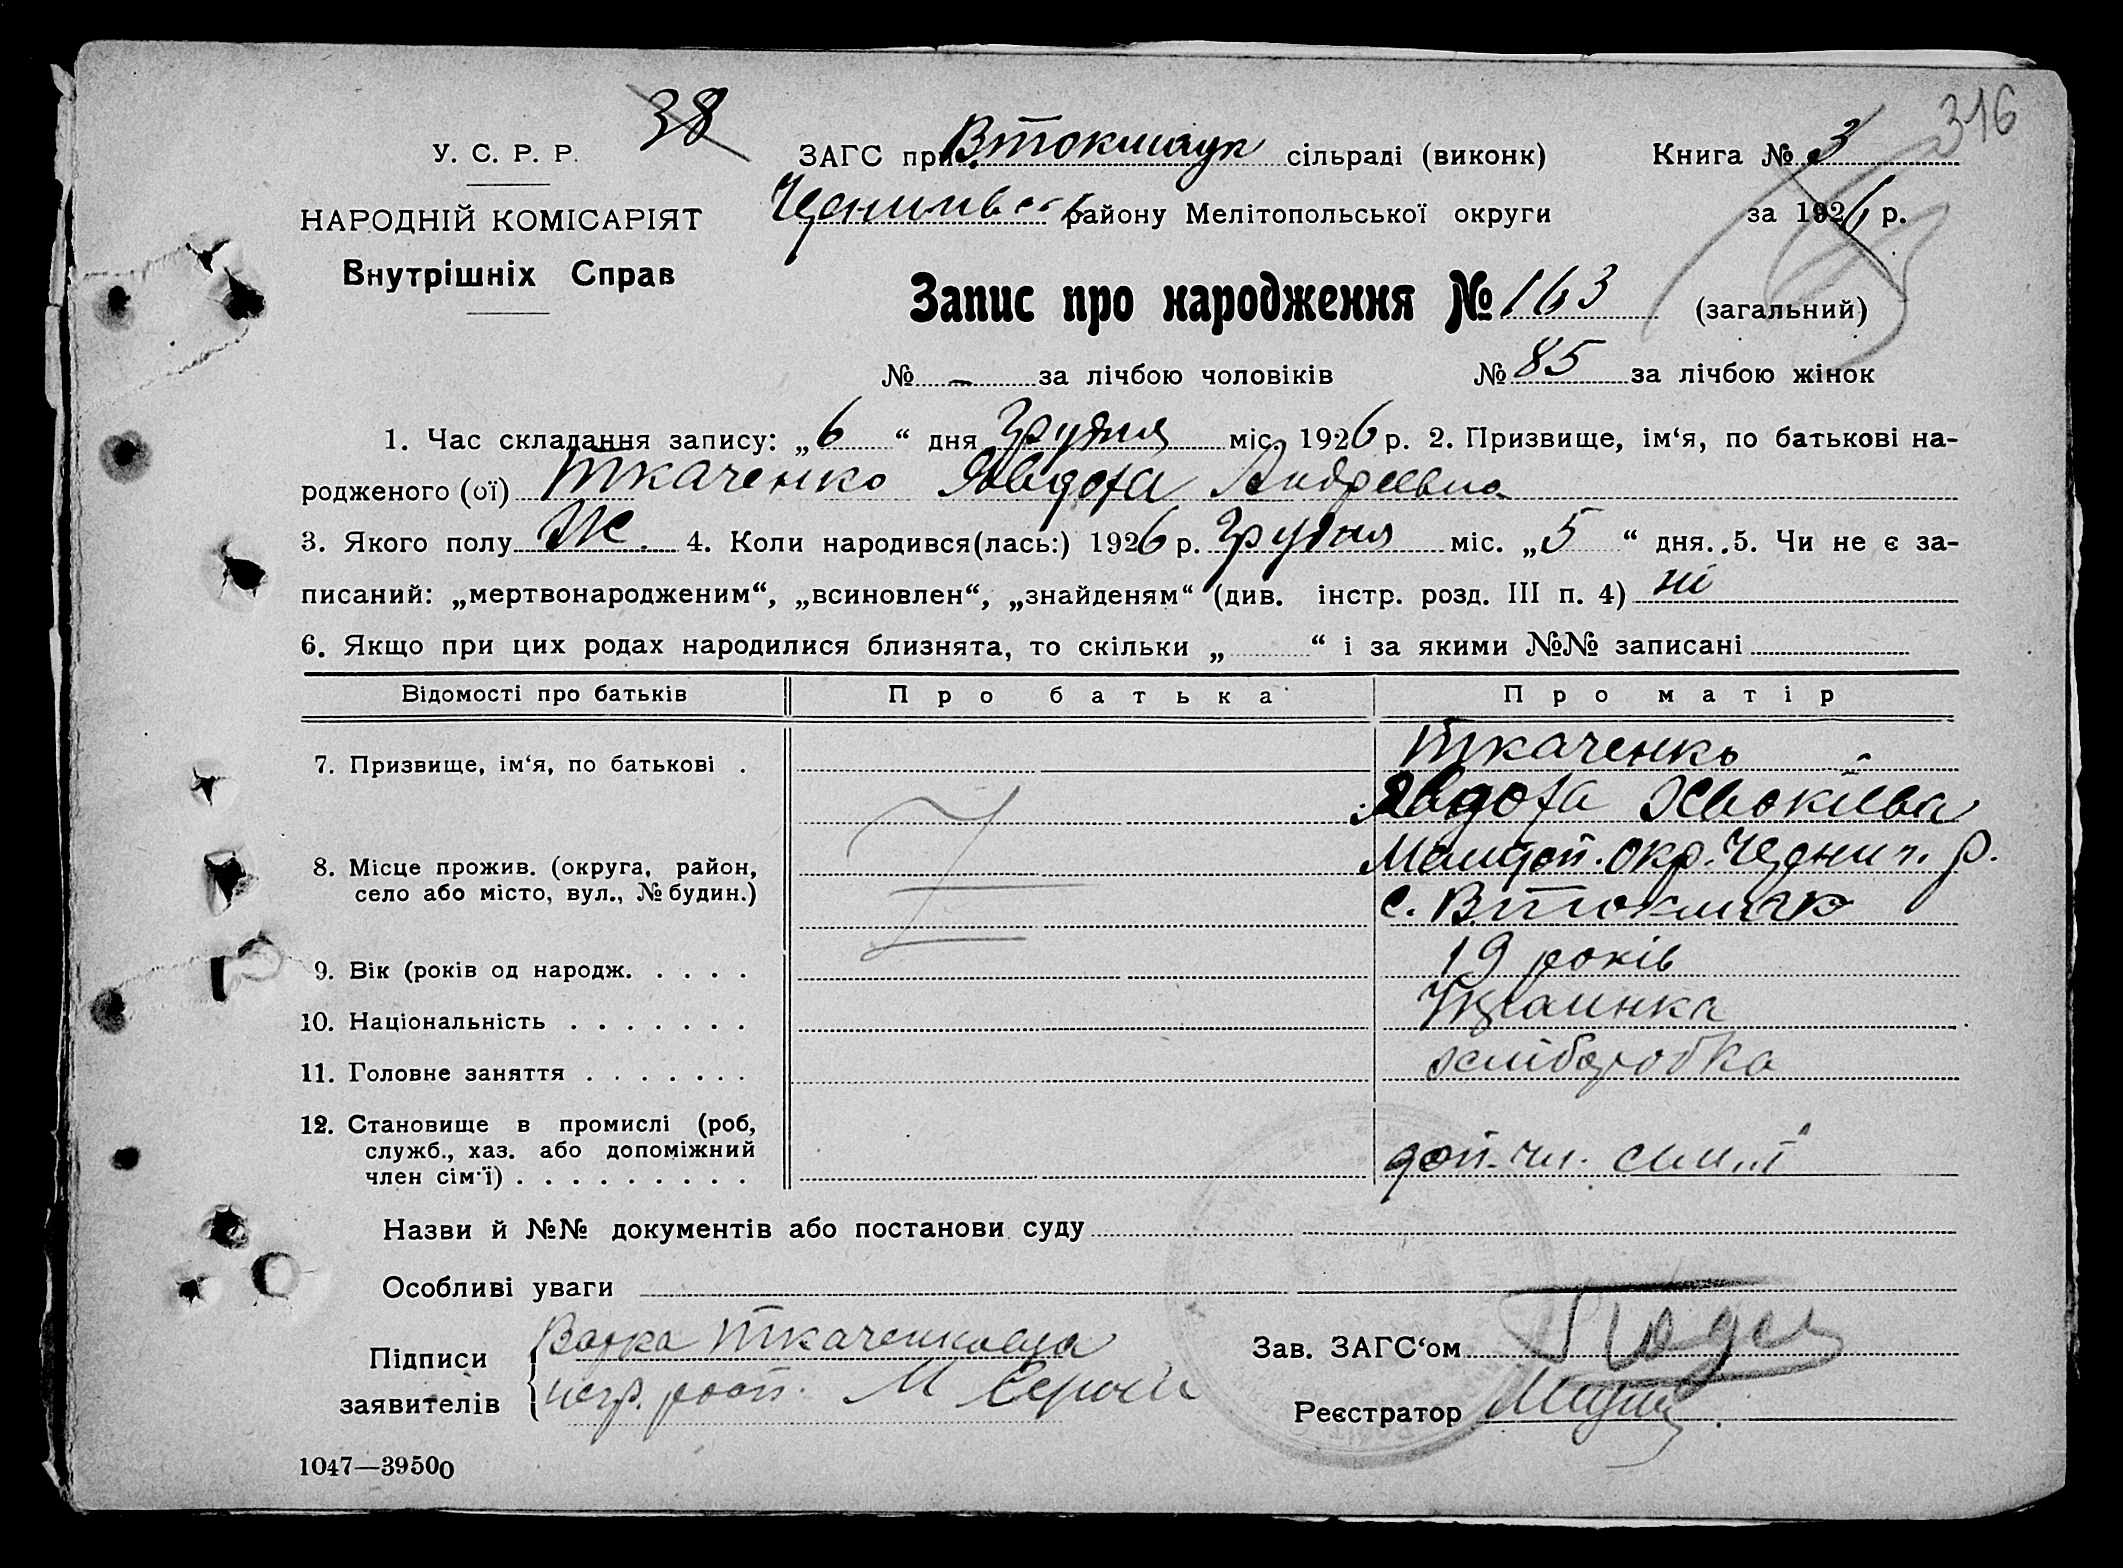 316
38
У. С. Р. Р.
ЗАГС при В токмацк сільраді (виконк)
Книга № 3
НАРОДНІЙ КОМІСАРІЯТ
району Мелітопольської округи
за 1926 р.
Внутрішніх Справ
Запис про народження № 163 (загальний)
№ - за лічбою чоловіків № 85 за лічбою жінок
1. Час складання запису: „6“ дня Грудня міс. 1926 р. 2. Призвище, ім‘я, по батькові на-
родженого (ої) Ткаченко Явдоха Андреевна
3. Якого полу Ж. 4. Коли народився(лась:) 1926 р. Грудня міс. „5“ дня. 5. Чи не є за-
писаний: „мертвонародженим“, „всиновлен“, „знайденям“ (див. інстр. розд. III п. 4) ні
6. Якщо при цих родах народилися близнята, то скільки „ “ і за якими №№ записані
Відомості про батьків Про батька Про матір
7. Призвище, ім‘я, по батькові . Ткаченко
Явдоха
8. Місце прожив. (округа, район, Меліт. окр. р.
село або місто, вул., № будин.) с. В. Токмак
9. Вік (років од народж. . . . . 19 років
10. Національність . . . . . . . Українка
11. Головне заняття . . . . . . хліборобка
12. Становище в промислі (роб,
служб., хаз. або допоміжний доп. чл. сім'ї
член сім‘ї) . . . . . . . . .
Назви й №№ документів або постанови суду
Особливі уваги
Підписи
заявителів
Варка Ткаченкова
М
Зав. ЗАГС‘ом
Реєстратор
1047—39500